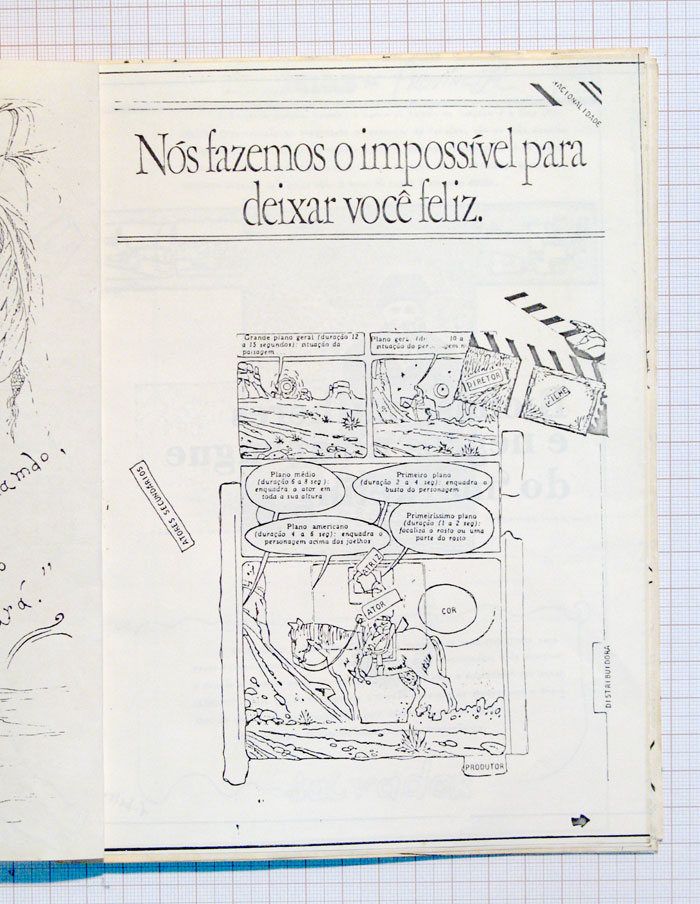 NACIONALIDADE
Nós fazemos o impossível para
deixar você feliz.
Grande plano geral (duração 12
a 15 segundos): situação da
paisagem
Plano gera 10 a
situação do
DIRETOR
FILME
Plano médio
(duração 6 a 8 seg):
enquadra o ator em
toda a sua altura
Primeiro plano
(duração 2 a 4 seg): enquadra o
busto do personagem
Plano americano
(duração 4 a 6 seg): enquadra o
personagem acima dos joelhos
Primeiríssimo plano
(duração (1 a 2 seg):
focaliza o rosto ou uma
parte do rosto
ATORES SECUNDÁRIOS
ATRIZ
ATOR
COR
DISTRIBUIDORA
PRODUTOR